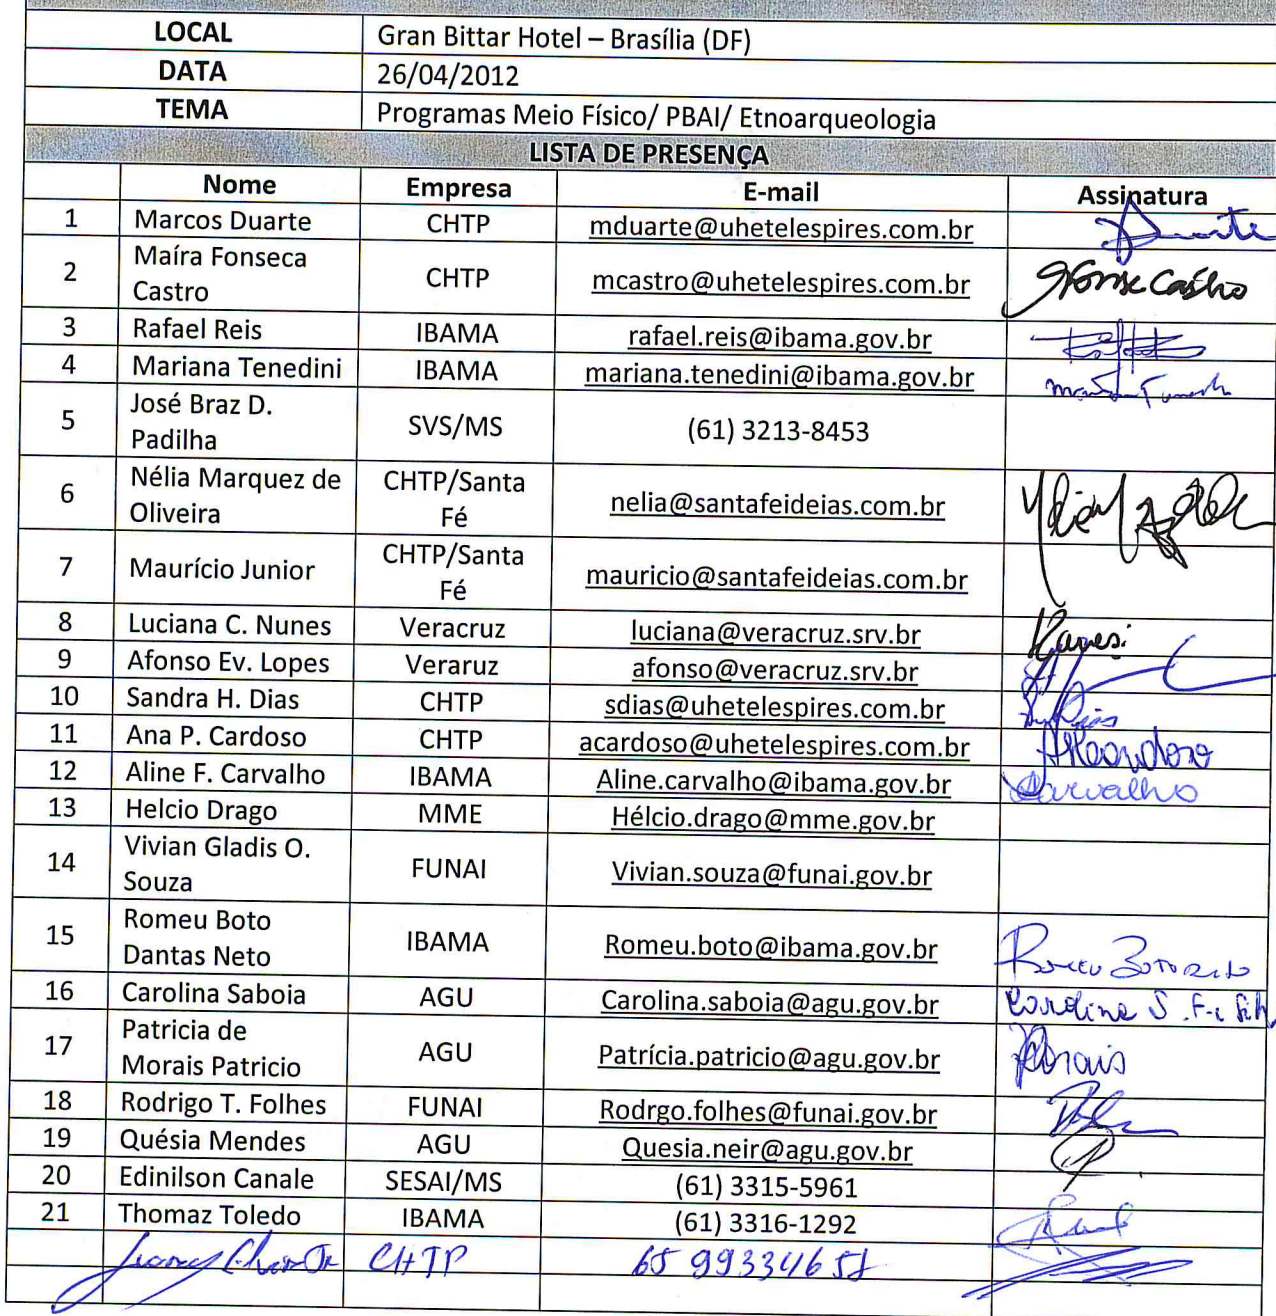 LOCAL Gran Bittar Hotel – Brasília (DF)
DATA 26/04/2012
TEMA Programas Meio Físico/ PBAI/ Etnoarqueologia
LISTA DE PRESENÇA
Nome Empresa E-mail Assinatura
1 Marcos Duarte CHTP mduarte@uhetelespires.com.br Duarte
2 Maíra Fonseca Castro CHTP mcastro@uhetelespires.com.br Castro
3 Rafael Reis IBAMA rafael.reis@ibama.gov.br
4 Mariana Tenedini IBAMA mariana.tenedini@ibama.gov.br
5 José Braz D. Padilha SVS/MS (61) 3213-8453
6 Nélia Marquez de Oliveira CHTP/Santa Fé nelia@santafeideias.com.br
7 Maurício Junior CHTP/Santa Fé mauricio@santafeideias.com.br
8 Luciana C. Nunes Veracruz luciana@veracruz.srv.br
9 Afonso Ev. Lopes Veraruz afonso@veracruz.srv.br
10 Sandra H. Dias CHTP sdias@uhetelespires.com.br Dias
11 Ana P. Cardoso CHTP acardoso@uhetelespires.com.br APCardoso
12 Aline F. Carvalho IBAMA Aline.carvalho@ibama.gov.br Carvalho
13 Helcio Drago MME Hélcio.drago@mme.gov.br
14 Vivian Gladis O. Souza FUNAI Vivian.souza@funai.gov.br
15 Romeu Boto Dantas Neto IBAMA Romeu.boto@ibama.gov.br Romeu Boto
16 Carolina Saboia AGU Carolina.saboia@agu.gov.br Carolina S.
17 Patricia de Morais Patricio AGU Patrícia.patricio@agu.gov.br Morais
18 Rodrigo T. Folhes FUNAI Rodrgo.folhes@funai.gov.br
19 Quésia Mendes AGU Quesia.neir@agu.gov.br
20 Edinilson Canale SESAI/MS (61) 3315-5961
21 Thomaz Toledo IBAMA (61) 3316-1292
CHTP 65 99334651